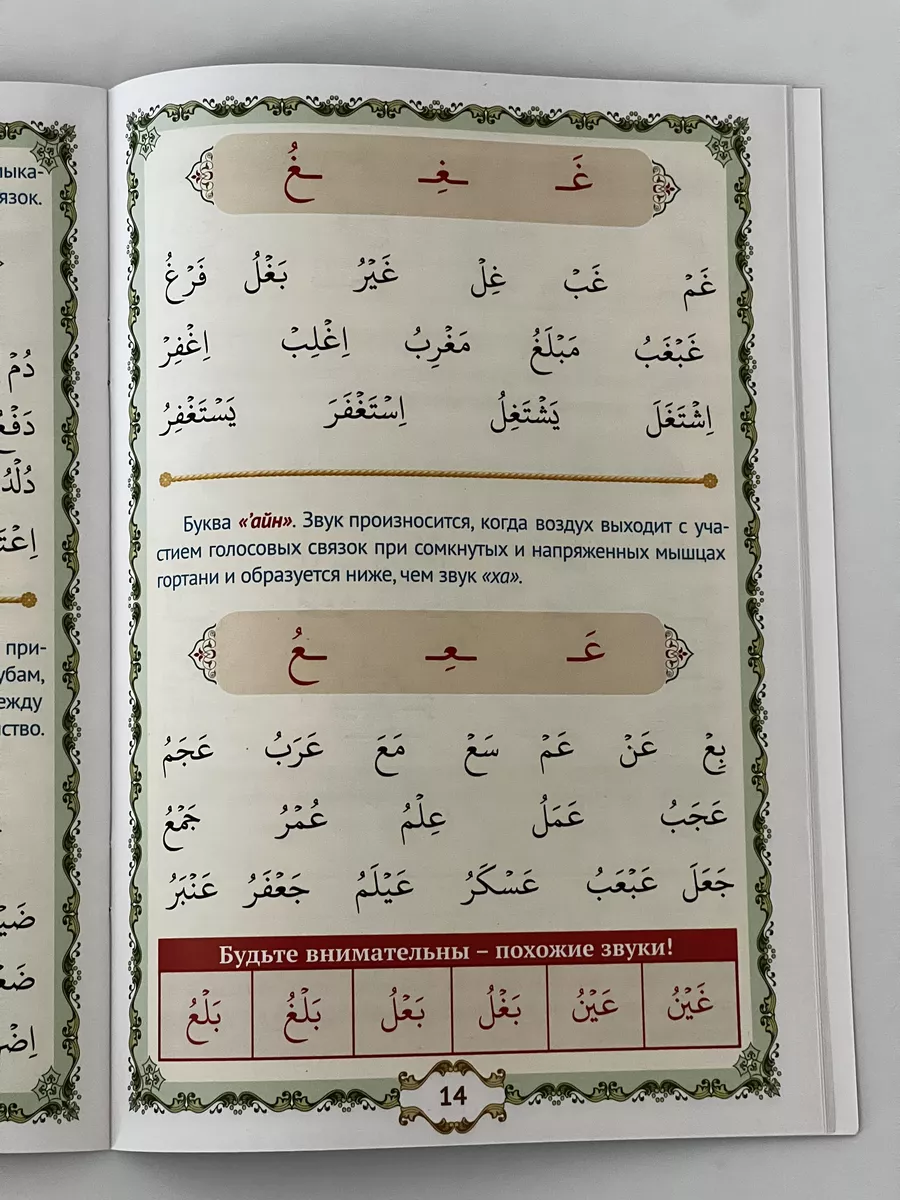 лыка-
язок.
دُمْ
دُلْدُ
при-
убам,
ежду
ство.
غَـ ـغِـ ـغُ
غَمْ غَبْ غِلْ غَيْرُ بَغْلُ فَرْغُ
غَبْغَبُ مَبْلَغُ مَغْرِبُ اِغْلِبْ اِغْفِرْ
اِشْتَغَلَ يَشْتَغِلُ اِسْتَغْفَرَ يَسْتَغْفِرُ
Буква «’айн». Звук произносится, когда воздух выходит с уча-
стием голосовых связок при сомкнутых и напряженных мышцах
гортани и образуется ниже, чем звук «ха».
عَـ ـعِـ ـعُ
بِعْ عَنْ عَمْ سَعْ مَعَ عَرَبُ عَجَمُ
عَجَبُ عَمَلُ عِلْمُ عُمْرُ جَمْعُ
جَعَلَ عَبْعَبُ عَسْكَرُ عَيْلَمُ جَعْفَرُ عَنْبَرُ
Будьте внимательны – похожие звуки!
غَيْنُ عَيْنُ بَغْلُ بَعْلُ بَلْغُ بَلْعُ
14